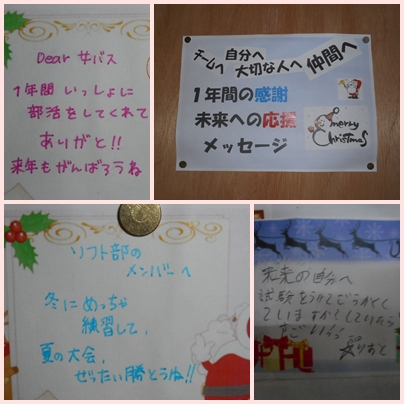 Dear 女バス
1年間いっしょに
部活をしてくれて
ありがと!!
来年もがんばろうね
チームへ 自分へ
大切な人へ 仲間へ
1年間の感謝
未来への応援
メッセージ
merry
Christmas
ソフト部の
メンバーへ
冬にめっちゃ
練習して、
夏の大会、
ぜったい勝とうね!!
未来の自分へ
試験をうけてごうかくし
ていますか?していたら
すごいっ